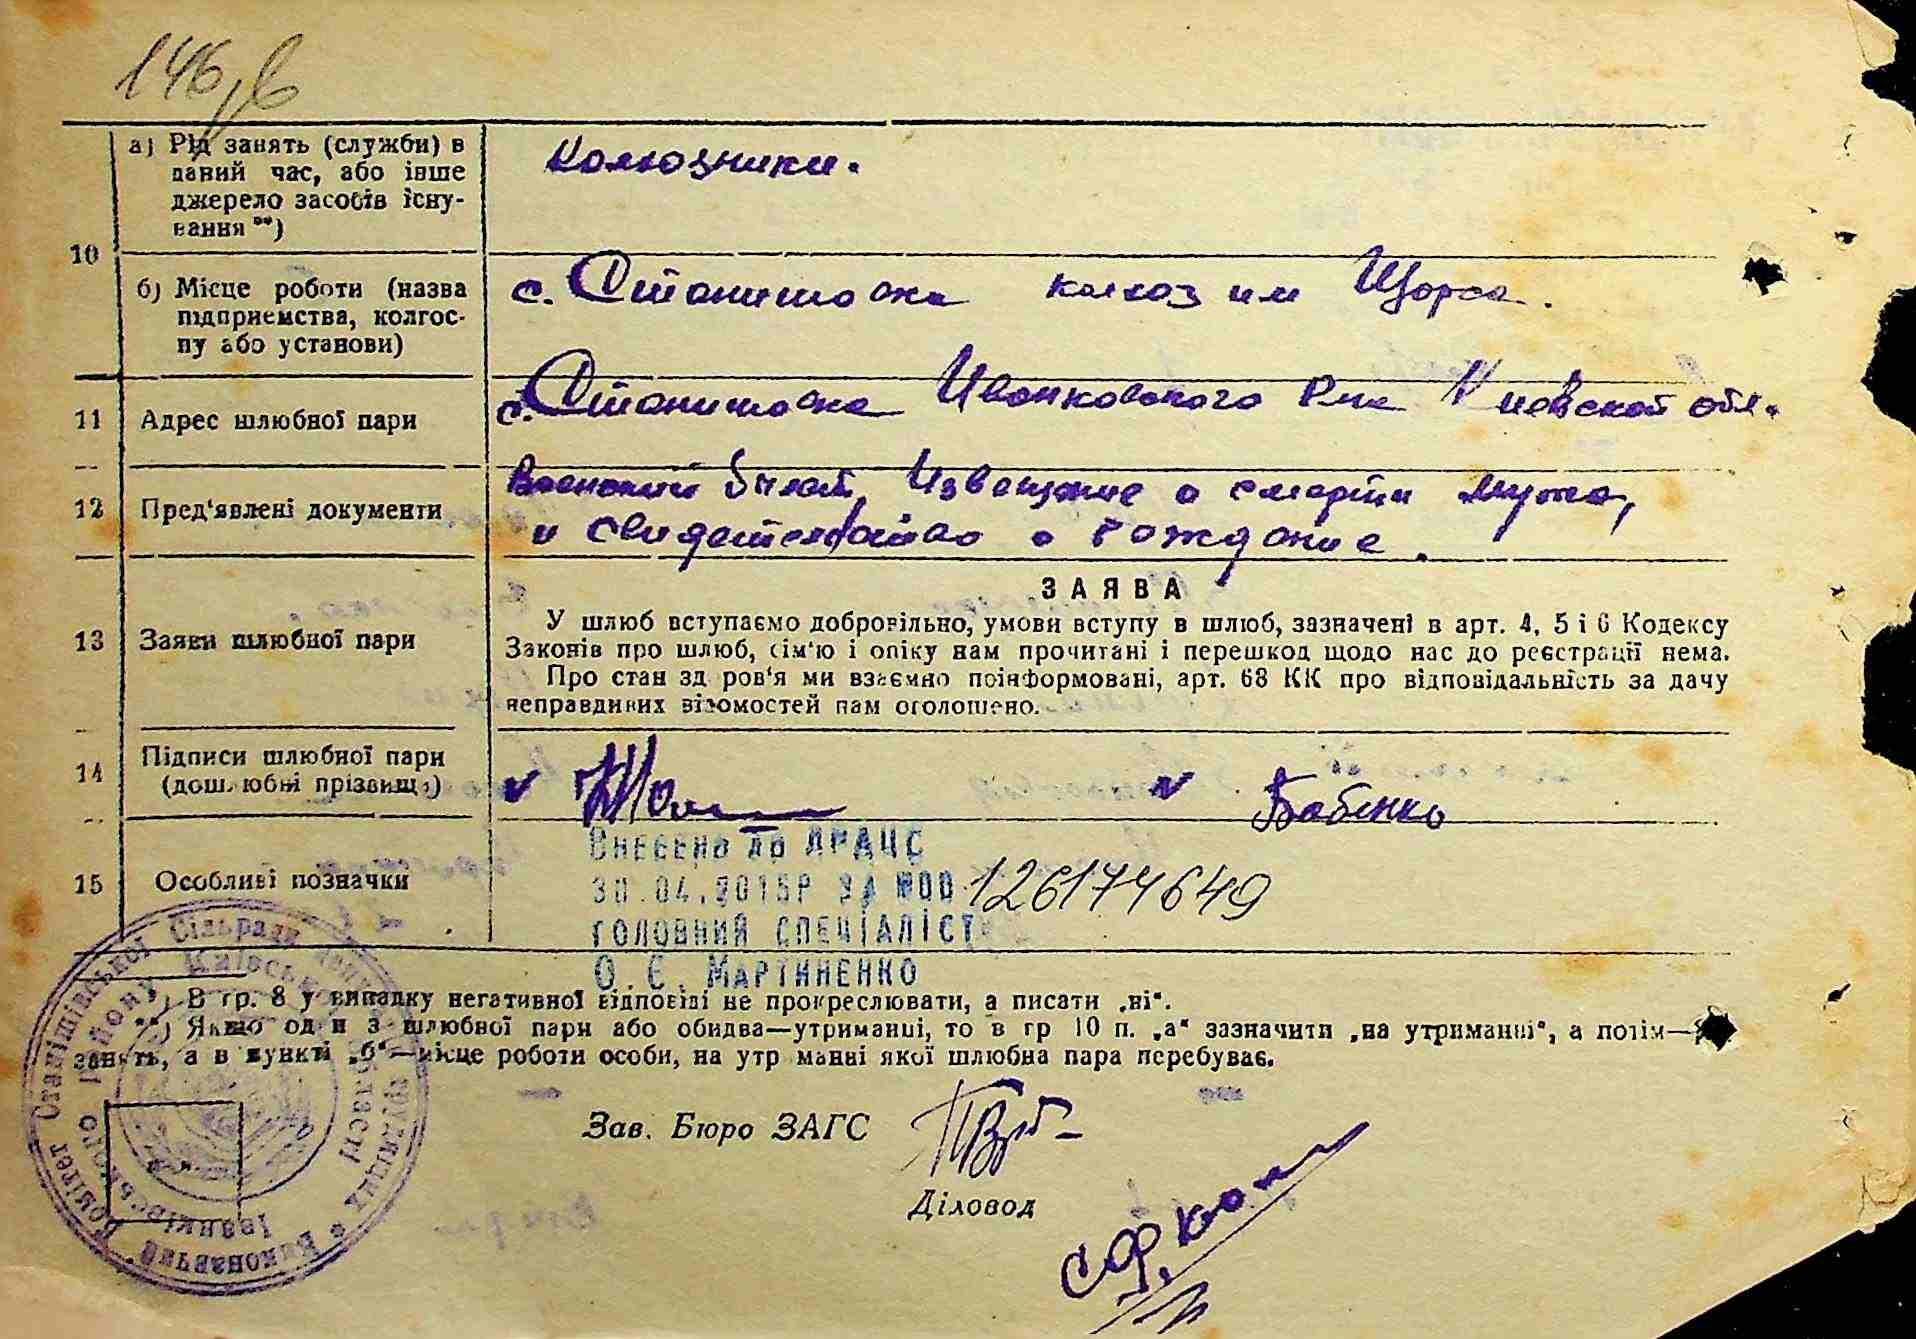 146,в
а) Рід занять (служби) в
даний час, або інше
джерело засобів існу-
вання **)
колхозники.
10
б) Місце роботи (назва
підприємства, колгос-
пу або установи)
с. Станишовка колхоз им Щорса.
11 Адрес шлюбної пари
с. Станишовка Иванковского Р-на Киевской обл.
12 Пред'явлені документи
Военский билет, Извещение о смерти мужа,
и свидетельство о рождание.
ЗАЯВА
13 Заяви шлюбної пари
У шлюб вступаємо добровільно, умови вступу в шлюб, зазначені в арт. 4, 5 і 6 Кодексу
Законів про шлюб, сім'ю і опіку нам прочитані і перешкод щодо нас до реєстрації нема.
Про стан здоров'я ми взаємно поінформовані, арт. 68 КК про відповідальність за дачу
неправдивих відомостей нам оголошено.
14 Підписи шлюбної пари
(дошлюбні прізвища)
Бабенко
15 Особливі позначки
Внесено до ДРАЦС
30.04.2015р за №00 126174649
головний спеціаліст
О. Є. Мартиненко
*) В гр. 8 у випадку негативної відповіді не прокреслювати, а писати „ні“.
**) Якщо один з шлюбної пари або обидва—утриманці, то в гр 10 п. „а“ зазначити „на утриманні“, а потім—
занять, а в пункті „б“—місце роботи особи, на утр манні якої шлюбна пара перебуває.
Зав. Бюро ЗАГС
Діловод
Виконавчий Комітет Станішівської Сільради трудящих
Іванківського району Київської області